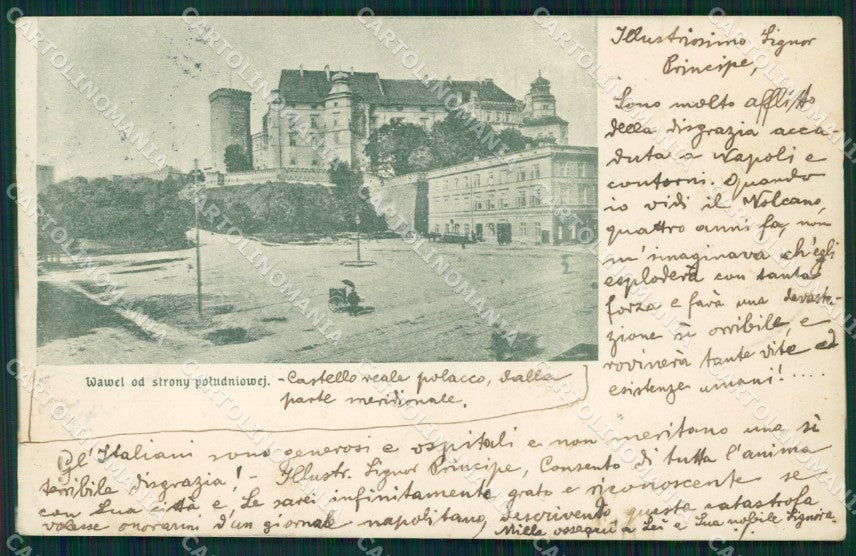 Illustrissimo Signor
Principe,
Sono molto afflitto
della disgrazia acca-
duta a Napoli e
contorni. Quando
io vidi il Volcano,
quattro anni fa, non
m'imaginava ch'egli
esploderà con tanta
forza e farà una devasta-
zione sì orribile, e
rovinerà tante vite ed
esistenze umani!.....
Wawel od strony południowej. - Castello reale polacco, dalla
parte meridionale.
Gl'Italiani sono generosi e ospitali e non meritano una sì
terribile disgrazia! - Illustr. Signor Principe, Consento di tutta l'anima
con Sua città e Le sarei infinitamente grato e riconoscente se
volesse onorarmi d'un giornale napolitano, descrivendo questa catastrofa
Mille ossequi a Lei e Sua nobile Signora.
CARTOLINOMANIA